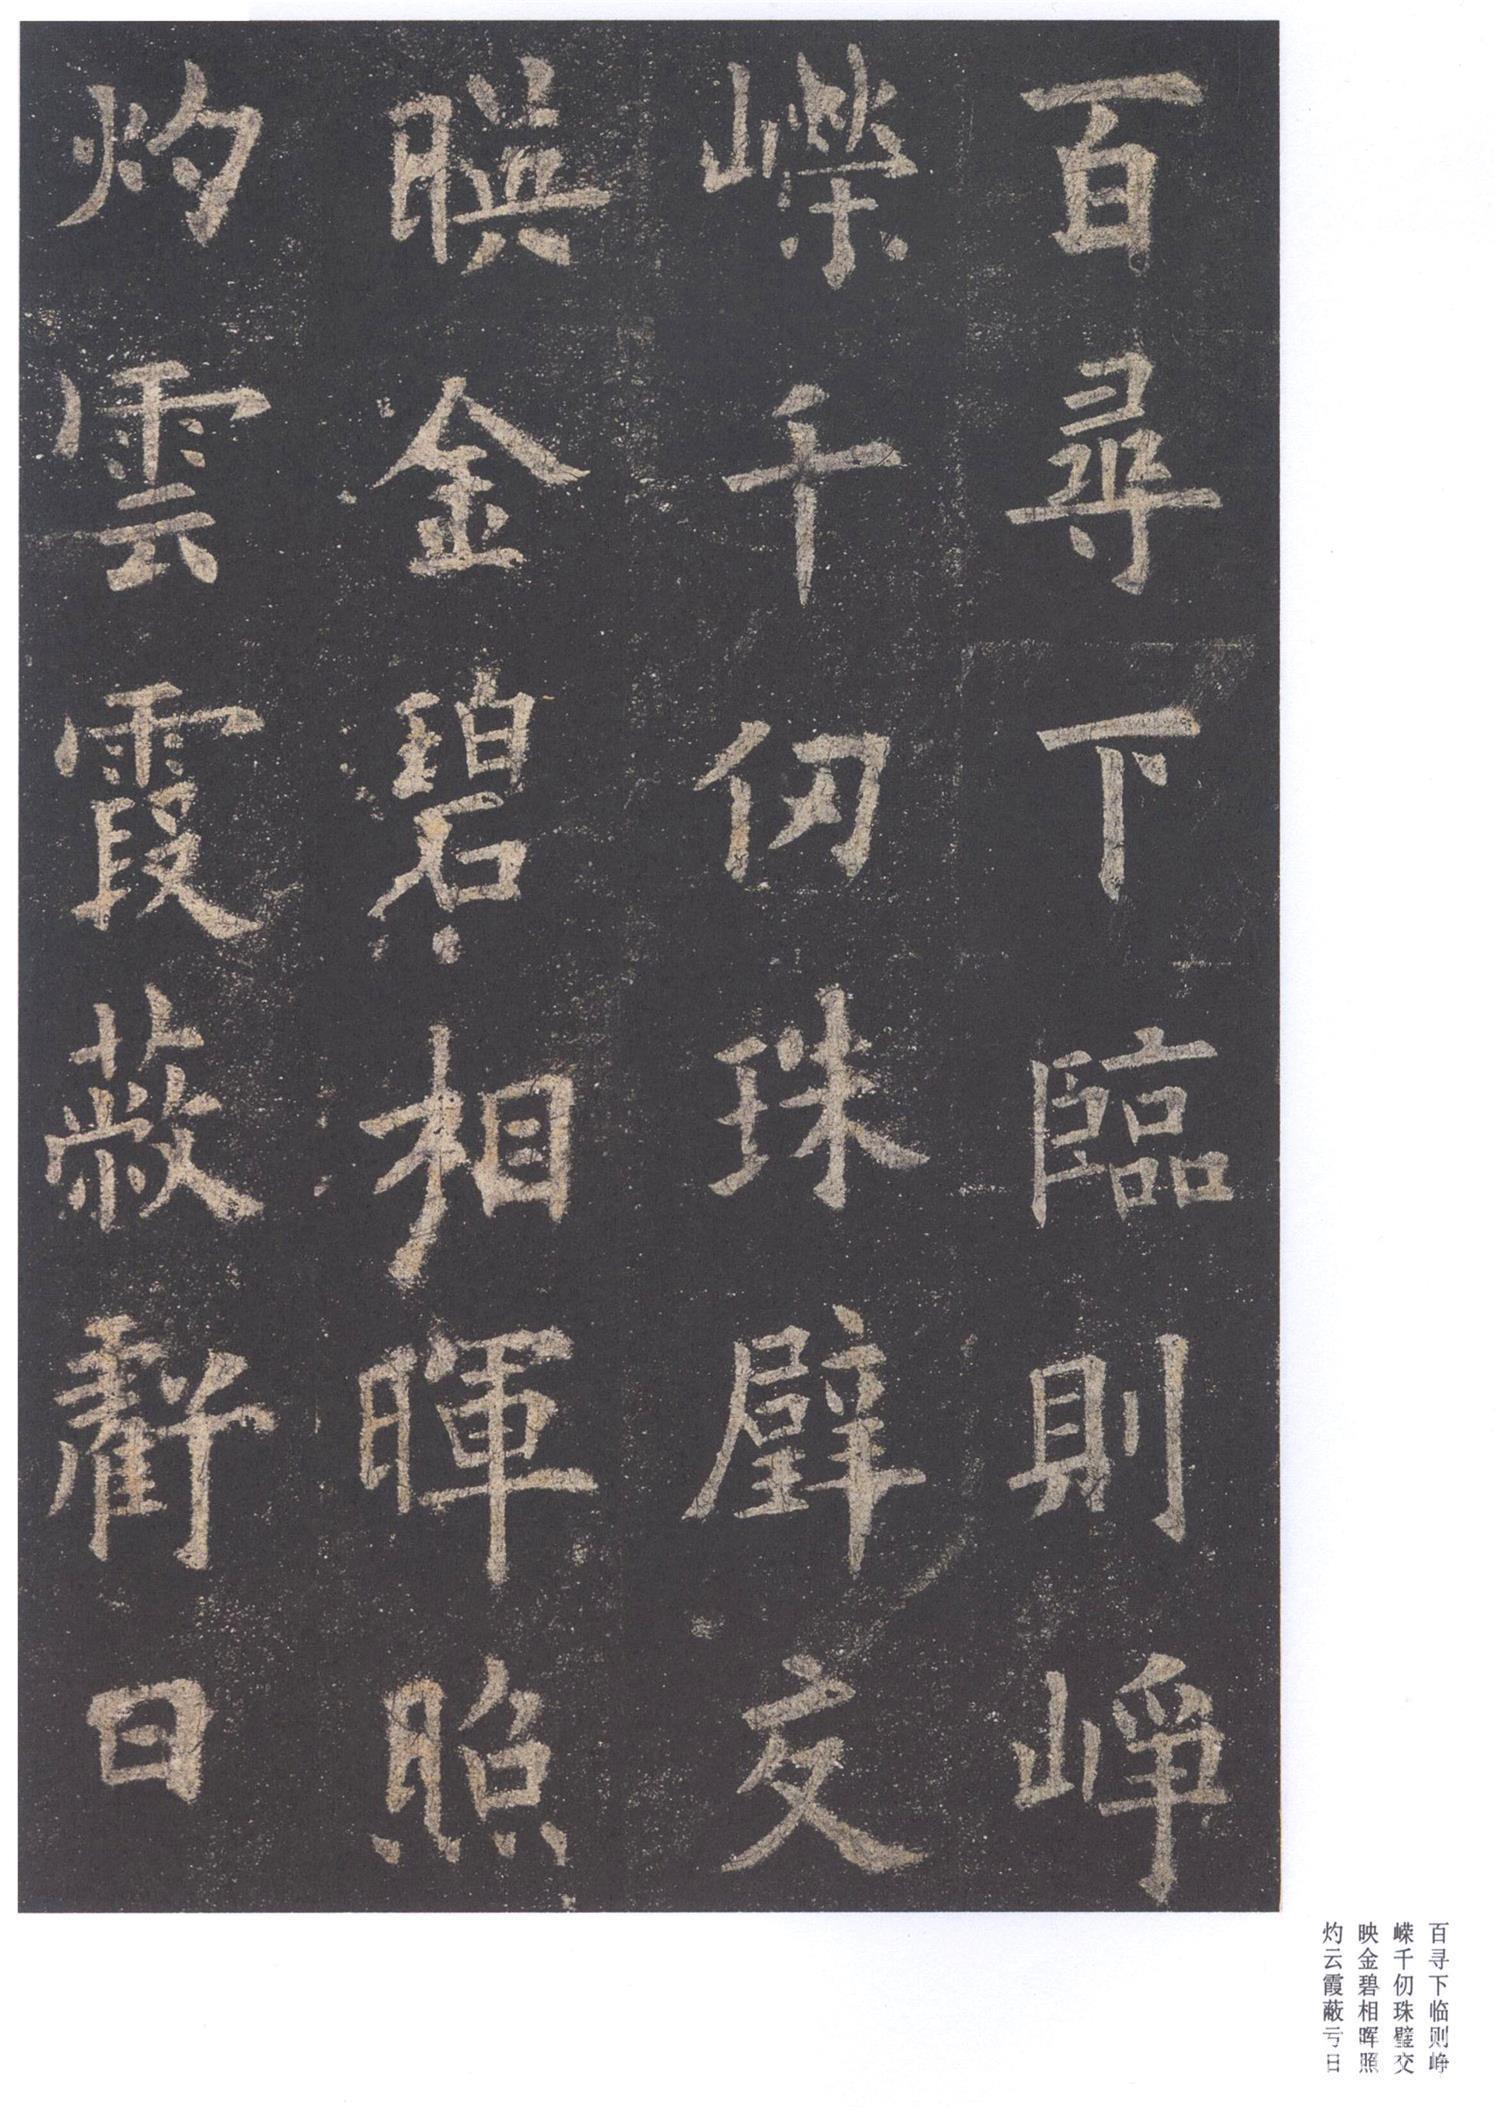 百尋下臨則崢
嶸千仞珠璧交
暎金碧相暉照
灼雲霞蔽虧日
百寻下临则峥
嵘千仞珠璧交
映金碧相晖照
灼云霞蔽亏日